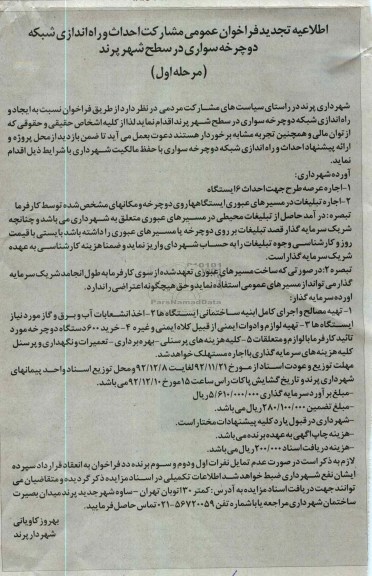 اطلاعیه تجدید فراخوان عمومی مشارکت احداث و راه اندازی شبکه
دوچرخه سواری در سطح شهر پرند
(مرحله اول)
شهرداری پرند در راستای سیاست های مشارکت مردمی در نظر دارد از طریق فراخوان نسبت به ایجاد و
راه اندازی شبکه دوچرخه سواری در سطح شهر پرند اقدام نماید لذا از کلیه اشخاص حقیقی و حقوقی که
از توان مالی و همچنین تجربه مشابه برخوردار هستند دعوت بعمل می آید تا ضمن بازدید از محل پروژه و
ارائه پیشنهاد احداث و راه اندازی شبکه دوچرخه سواری با حفظ مالکیت شهرداری با شرایط ذیل اقدام
نماید.
آورده شهرداری:
۱-اجاره عرصه طرح جهت احداث ۶ ایستگاه
۲-اجاره تبلیغات در مسیرهای عبوری ایستگاهها روی دوچرخه و مکانهای مشخص شده توسط کارفرما
تبصره: درآمد حاصل از تبلیغات محیطی در مسیرهای عبوری متعلق به شهرداری می باشد و چنانچه
شریک سرمایه گذار قصد تبلیغات بر روی دوچرخه یا مسیرهای عبوری را داشته باشد بایستی با قیمت
روز و کارشناسی وجوه تبلیغات را به حساب شهرداری واریز نماید و ضمنا هزینه کارشناسی به عهده
شریک سرمایه گذار است.
تبصره ۲: در صورتی که ساخت مسیرهای عبوری تعهد شده از سوی کارفرما به طول انجامد شریک سرمایه
گذار می تواند از مسیرهای عمومی استفاده نماید و حق هیچگونه اعتراضی را ندارد.
ParsNamadData
آورده سرمایه گذار:
۱- تهیه مصالح و اجرای کامل ابنیه ساختمانی ایستگاه ها ۲-اخذ انشعابات آب و برق و گاز مورد نیاز
ایستگاه ها ۳- تهیه لوازم و ادوات ایمنی از قبیل کلاه ایمنی و غیره ۴- خرید ۶۰۰ دستگاه دوچرخه مورد
تائید کارفرما با لوازم و متعلقات ۵-کلیه هزینه های پرسنلی -بهره برداری - تعمیرات و نگهداری و پرسنل
کلیه هزینه های سرمایه گذاری با اجاره مستهلک خواهد شد.
مهلت توزیع و عودت اسناد از مورخ ۹۲/۱۱/۲۱ لغایت ۹۲/۱۲/۸ و محل توزیع اسناد واحد پیمانهای
شهرداری پرند و تاریخ گشایش پاکات راس ساعت ۱۵ مورخ ۹۲/۱۲/۱۰ می باشد.
-مبلغ برآورد سرمایه گذاری ۵/۶۱۰/۰۰۰/۰۰۰ ریال
-مبلغ تضمین ۲۸۰/۱۰۰/۰۰۰ ریال می باشد.
-شهرداری در قبول یا رد کلیه پیشنهادات مختار است.
-هزینه چاپ آگهی به عهده برنده می باشد.
-هزینه دریافت اسناد ۲۰۰/۰۰۰ ریال می باشد.
لازم به ذکر است در صورت عدم تمایل نفرات اول و دوم و سوم برنده در فراخوان به انعقاد قرارداد سپرده
ایشان نفع شهرداری ضبط خواهد شد اطلاعات تکمیلی در اسناد مزایده ذکر گردیده و متقاضیان می
توانند جهت دریافت اسناد مزایده به آدرس: کمتر ۳۰ اتوبان تهران - ساوه شهر جدید پرند میدان بصیرت
ساختمان شهرداری مراجعه یا با شماره تلفن ۵۶۷۲۰۰۵۹-۰۲۱ تماس حاصل فرمایید.
بهروز کاویانی
شهردار پرند